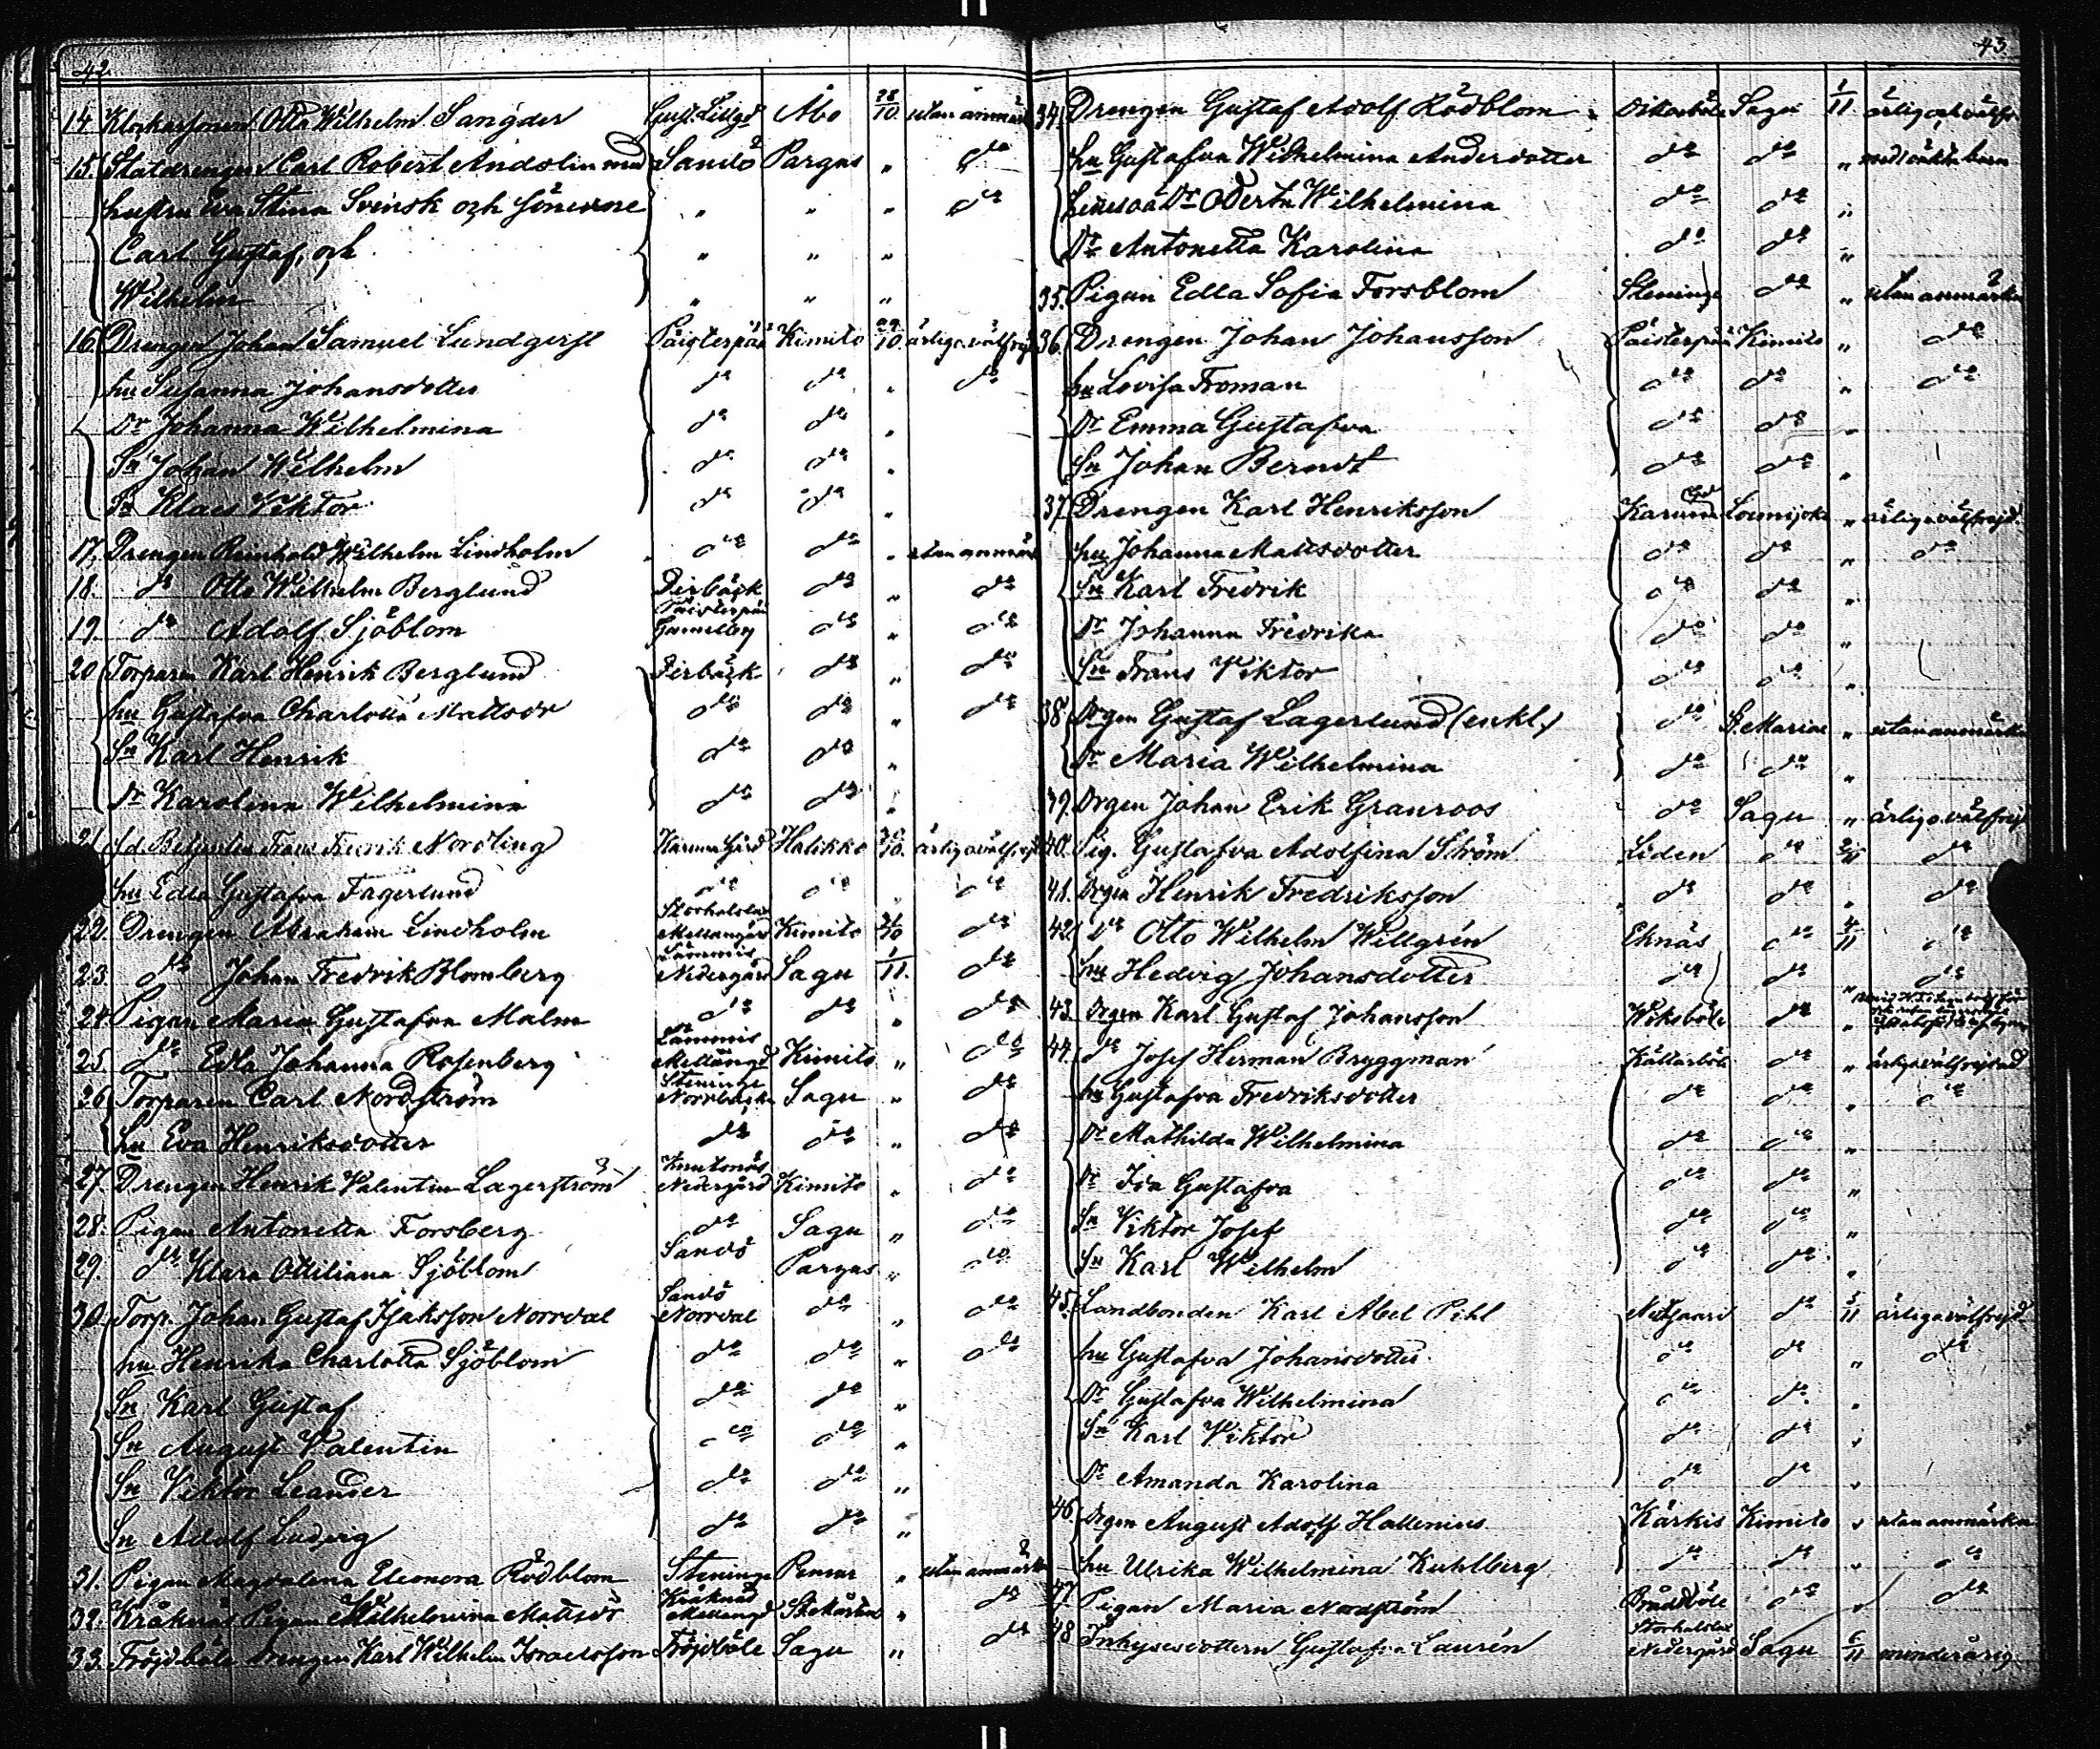 42.
14. Klockarsonen Otto Wilhelm Sangder Åbo 28/10. utan anmärk
15. Statdrengen Carl Robert Andolin med Sandö Pargas " do
hustru Eva Stina Svinsk och sönerne " " " do
Carl Gustaf, och " " "
Wilhelm " " "
16. Drengen Johan Samuel Lundqvist Paisterpää Kimito 29/10. ärlig o. välfrejd
hu Susanna Johansdotter do do " do
Dr Johanna Wilhelmina do do "
Sn Johan Wilhelm do do "
Sn Klaes Viktor do do "
17. Drengen Reinhold Wilhelm Lindholm do do " utan anmärk
18. do Otto Wilhelm Berglund Dirbäck do " do
19. do Adolf Sjöblom Paisterpää Gamelby do " do
20 Torparen Karl Henrik Berglund Dirbäck do " do
hu Gustafva Charlotta Mattsdr do do " do
Sn Karl Henrik do do "
Dr Karolina Wilhelmina do do "
21. f.d. Betjenten Frans Fredrik Nordling Karuna Gård Halikko 30/10. ärlig o. välfrejd
hu Edla Gustafva Fagerlund do do " do
22. Drengen Abraham Lindholm Mellangård Kimito 31/10 do
23. do Johan Fredrik Blomberg Lämmis Nedergård Sagu 1/11. do
24. Pigan Maria Gustafva Malm do do " do
25. do Edla Johanna Rosenberg Lämmis Mellangd Kimito " do
26. Torparen Carl Nordström Steninge Norrbacka Sagu " do
hu Eva Henriksdotter do do " do
27. Drengen Henrik Valentin Lagerström Nedergård Kimito " do
28. Pigan Antonetta Forsberg do Sagu " do
29. do Klara Ottiliana Sjöblom Sandö Pargas " do
30. Torp. Johan Gustaf Isaksson Norrdal Sandö Norrdal do " do
hu Henrika Charlotta Sjöblom do do " do
Sn Karl Gustaf do do "
Sn August Valentin do do "
Sn Viktor Leander do do "
Sn Adolf Ludvig do do "
31. Pigan Magdalena Eleonora Rödblom Steninge Pemar " utan anmärkn
32. Kråknäs Pigan Wilhelmina Mattsdr Kråknäs Mellangd St. Mårtens " do
33. Fröjdböle Drengen Karl Wilhelm Israelsson Fröjdböle Sagu " do
43
34. Drengen Gustaf Adolf Rödblom Sagu 1/11 ärlig o. välfr.
hu Gustafva Wilhelmina Andersdotter do do " med oäkta barn
Dr Wilhelmina do do "
Dr Antonetta Karolina do do "
35. Pigan Edla Sofia Forsblom Steninge do " utan anmärkn
36. Drengen Johan Johansson Paisterpää Kimito " do
hu Lovisa Froman do do " do
Dr Emma Gustafva do do "
Sn Johan Berndt do do "
37. Drengen Karl Henriksson Karuna Gd Loimijoki " ärlig o. välfrejd.
hu Johanna Mattsdotter do do " do
Sn Karl Fredrik do do "
Dr Johanna Fredrika do do "
Sn Frans Viktor do do "
38. Drgen Gustaf Lagerlund (enkl.) do St. Mariae " utan anmärkn
Dr Maria Wilhelmina do do "
39. Drgen Johan Erik Granroos do Sagu " ärlig o. välfrejd
40. Pig. Gustafva Adolfina Ström Liden do 2/11 do
41. Drgen Henrik Fredriksson do do " do
42. do Otto Wilhelm Willgrén Eknäs do 4/11 do
hu Hedvig Johansdotter do do do
43. Drgen Karl Gustaf Johansson Wiksböle do "
44. do Josef Herman Bryggman Källarböle do " ärlig o. välfrejdad
hu Gustafva Fredriksdotter do do " do
Dr Mathilda Wilhelmina do do "
Dr Ida Gustafva do do "
Sn Viktor Josef do do "
Sn Karl Wilhelm do do "
45. Landbonden Karl Abel Pihl do 5/11 ärlig o. välfrejd.
hu Gustafva Johansdotter do do " do
Dr Gustafva Wilhelmina do do "
Sn Karl Viktor do do "
Dr Amanda Karolina do do "
46. Drgen August Adolf Hallenius Kärkis Kimito " utan anmärkn
hu Ulrika Wilhelmina Kuhlberg do do " do
47. Pigan Maria Nordström do " do
48 Inhysesdottern Gustafva Laurén Nedergård Sagu 6/11 minderårig